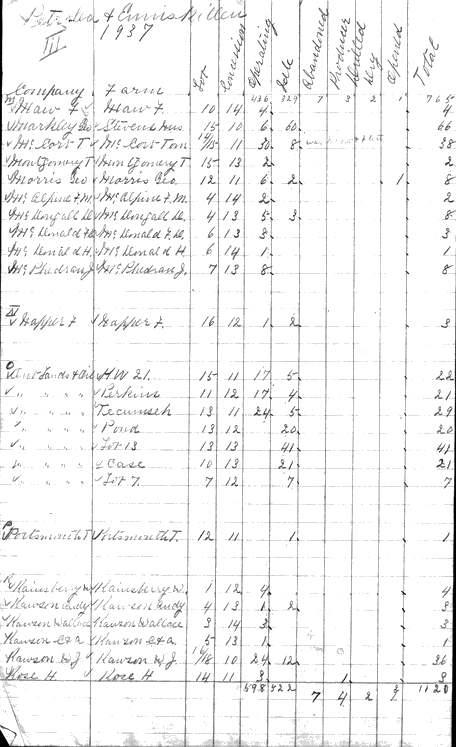 Petrolea & Enniskillen
III 1937
Company Farm Lot Concession Operating Idle Abandoned Producer Drilled Dry Opened Total
436 329 7 3 2 1 765
M Maw F. Maw F. 10 14 4 4
Markley Geo Stevens 15 10 6 60 66
McCort T. McCort Tom 14/15 11 30 8 38
Montgomery T Montgomery T. 15 13 2 2
Morris Geo Morris Geo 12 11 6 2 1 8
McAlpine F.M. McAlpine F.M. 4 14 2 2
McDougall D. McDougall D. 4 13 5 3 8
McDonald F.D. McDonald F.D. 6 13 3 3
McDonald H. McDonald H 6 14 1 1
McPhedran J. McPhedran J. 7 13 8 8
N Napper F Napper F. 16 12 1 2 3
O Ont Lands & Oil H.W 21. 15 11 17 5 22
" " " " Perkins 11 12 17 4 21
" " " " Tecumseh 13 11 24 5 29
" " " " Pond 13 12 20 20
" " " " Lot 13 13 13 41 41
" " " " Case 10 13 21 21
" " " " Lot 7 7 12 7 7
P Portsmouth T Portsmouth T. 12 11 1 1
R Rainsberry W Rainsberry W. 1 12 4 4
Rawson Andy Rawson Andy 4 13 1 2 3
Rawson Wallace Rawson Wallace 3 14 3 3
Rawson Rawson 5 13 1 1
Rawson W J Rawson W. J. 16/18 10 24 12 36
Rose H Rose H 14 11 3 1 3
598 522 7 4 2 1120